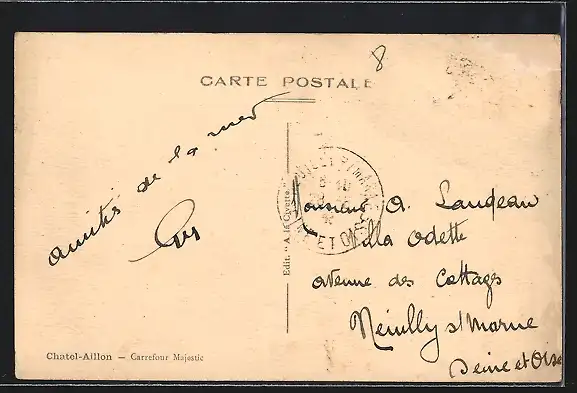 8
CARTE POSTALE
amitiés de la mer
Edit. "A la Civette"
Monsieur A. Landeau
Villa Odette
avenue des Cottages
Neuilly s/ Marne
Seine et Oise
ET OISE
Chatel-Aillon — Carrefour Majestic